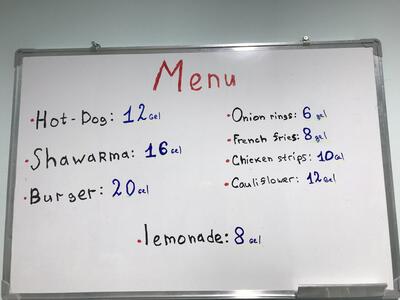 Menu
• Hot-Dog: 12 Gel
• Shawarma: 16 Gel
• Burger: 20 Gel
• Onion rings: 6 gel
• French fries: 8 gel
• Chicken strips: 10 Gel
• Cauliflower: 12 Gel
• lemonade: 8 Gel